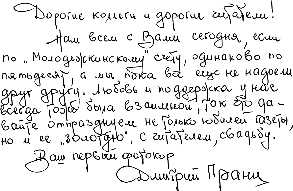 Дорогие коллеги и дорогие читатели!
Нам всем с Вами сегодня, если
по „Молодыскинскому" счету, одинаково по
пятьдесят, а мы пока ва еще не надоели
друг другу. Любовь и поддержка у нас
всегда была взаимной, так что да-
вайте отпразднуем не только юбилей газеты,
но и ее „золотую", с читателем, свадьбу.
Ваш первый фотокор
Дмитрий